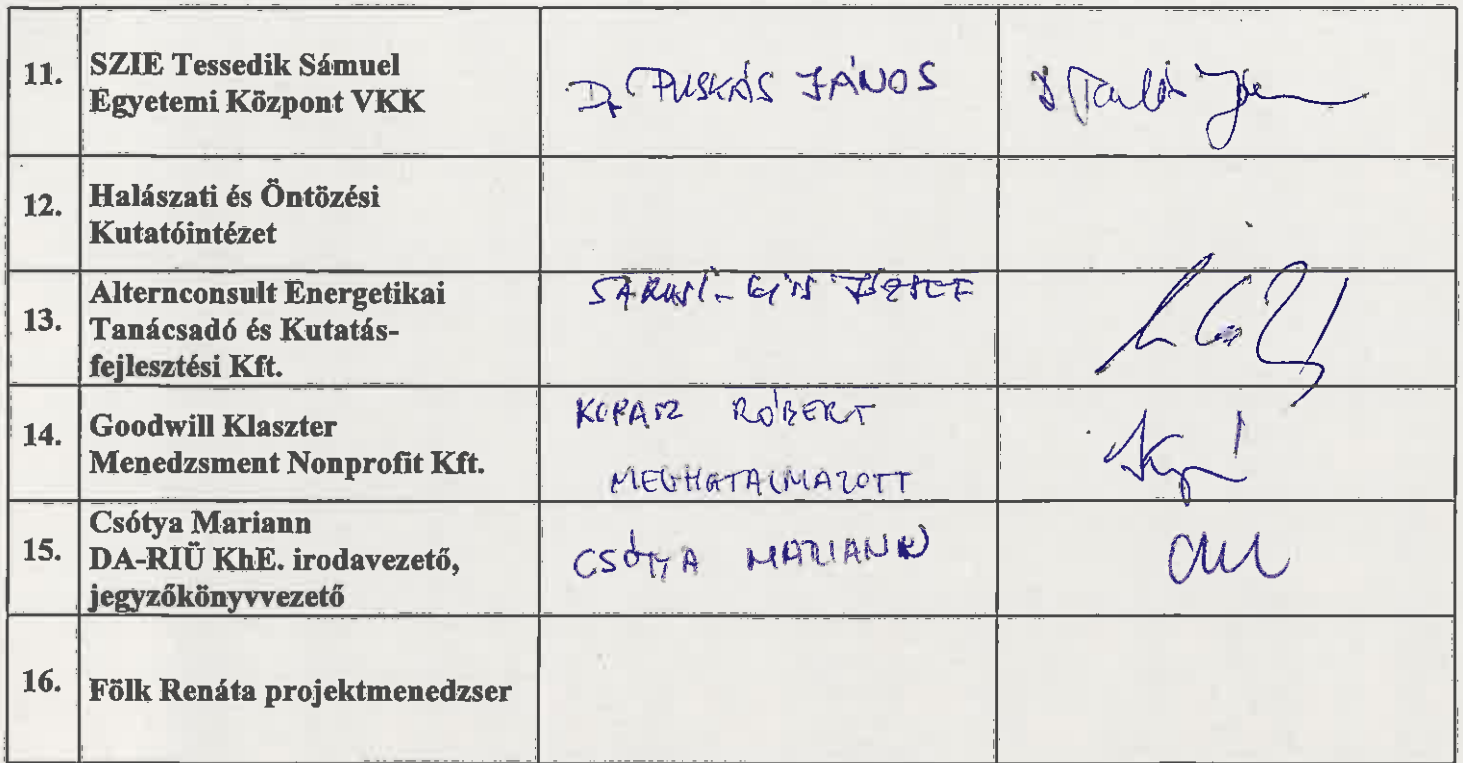 11.
SZIE Tessedik Sámuel
Egyetemi Központ VKK
Dr PUSKÁS JÁNOS
12.
Halászati és Öntözési
Kutatóintézet
13.
Alternconsult Energetikai
Tanácsadó és Kutatás-
fejlesztési Kft.
14.
Goodwill Klaszter
Menedzsment Nonprofit Kft.
KOPASZ RÓBERT
MEGHATALMAZOTT
15.
Csótya Mariann
DA-RIÜ KhE. irodavezető,
jegyzőkönyvvezető
CSÓTYA MARIANN
16.
Fölk Renáta projektmenedzser